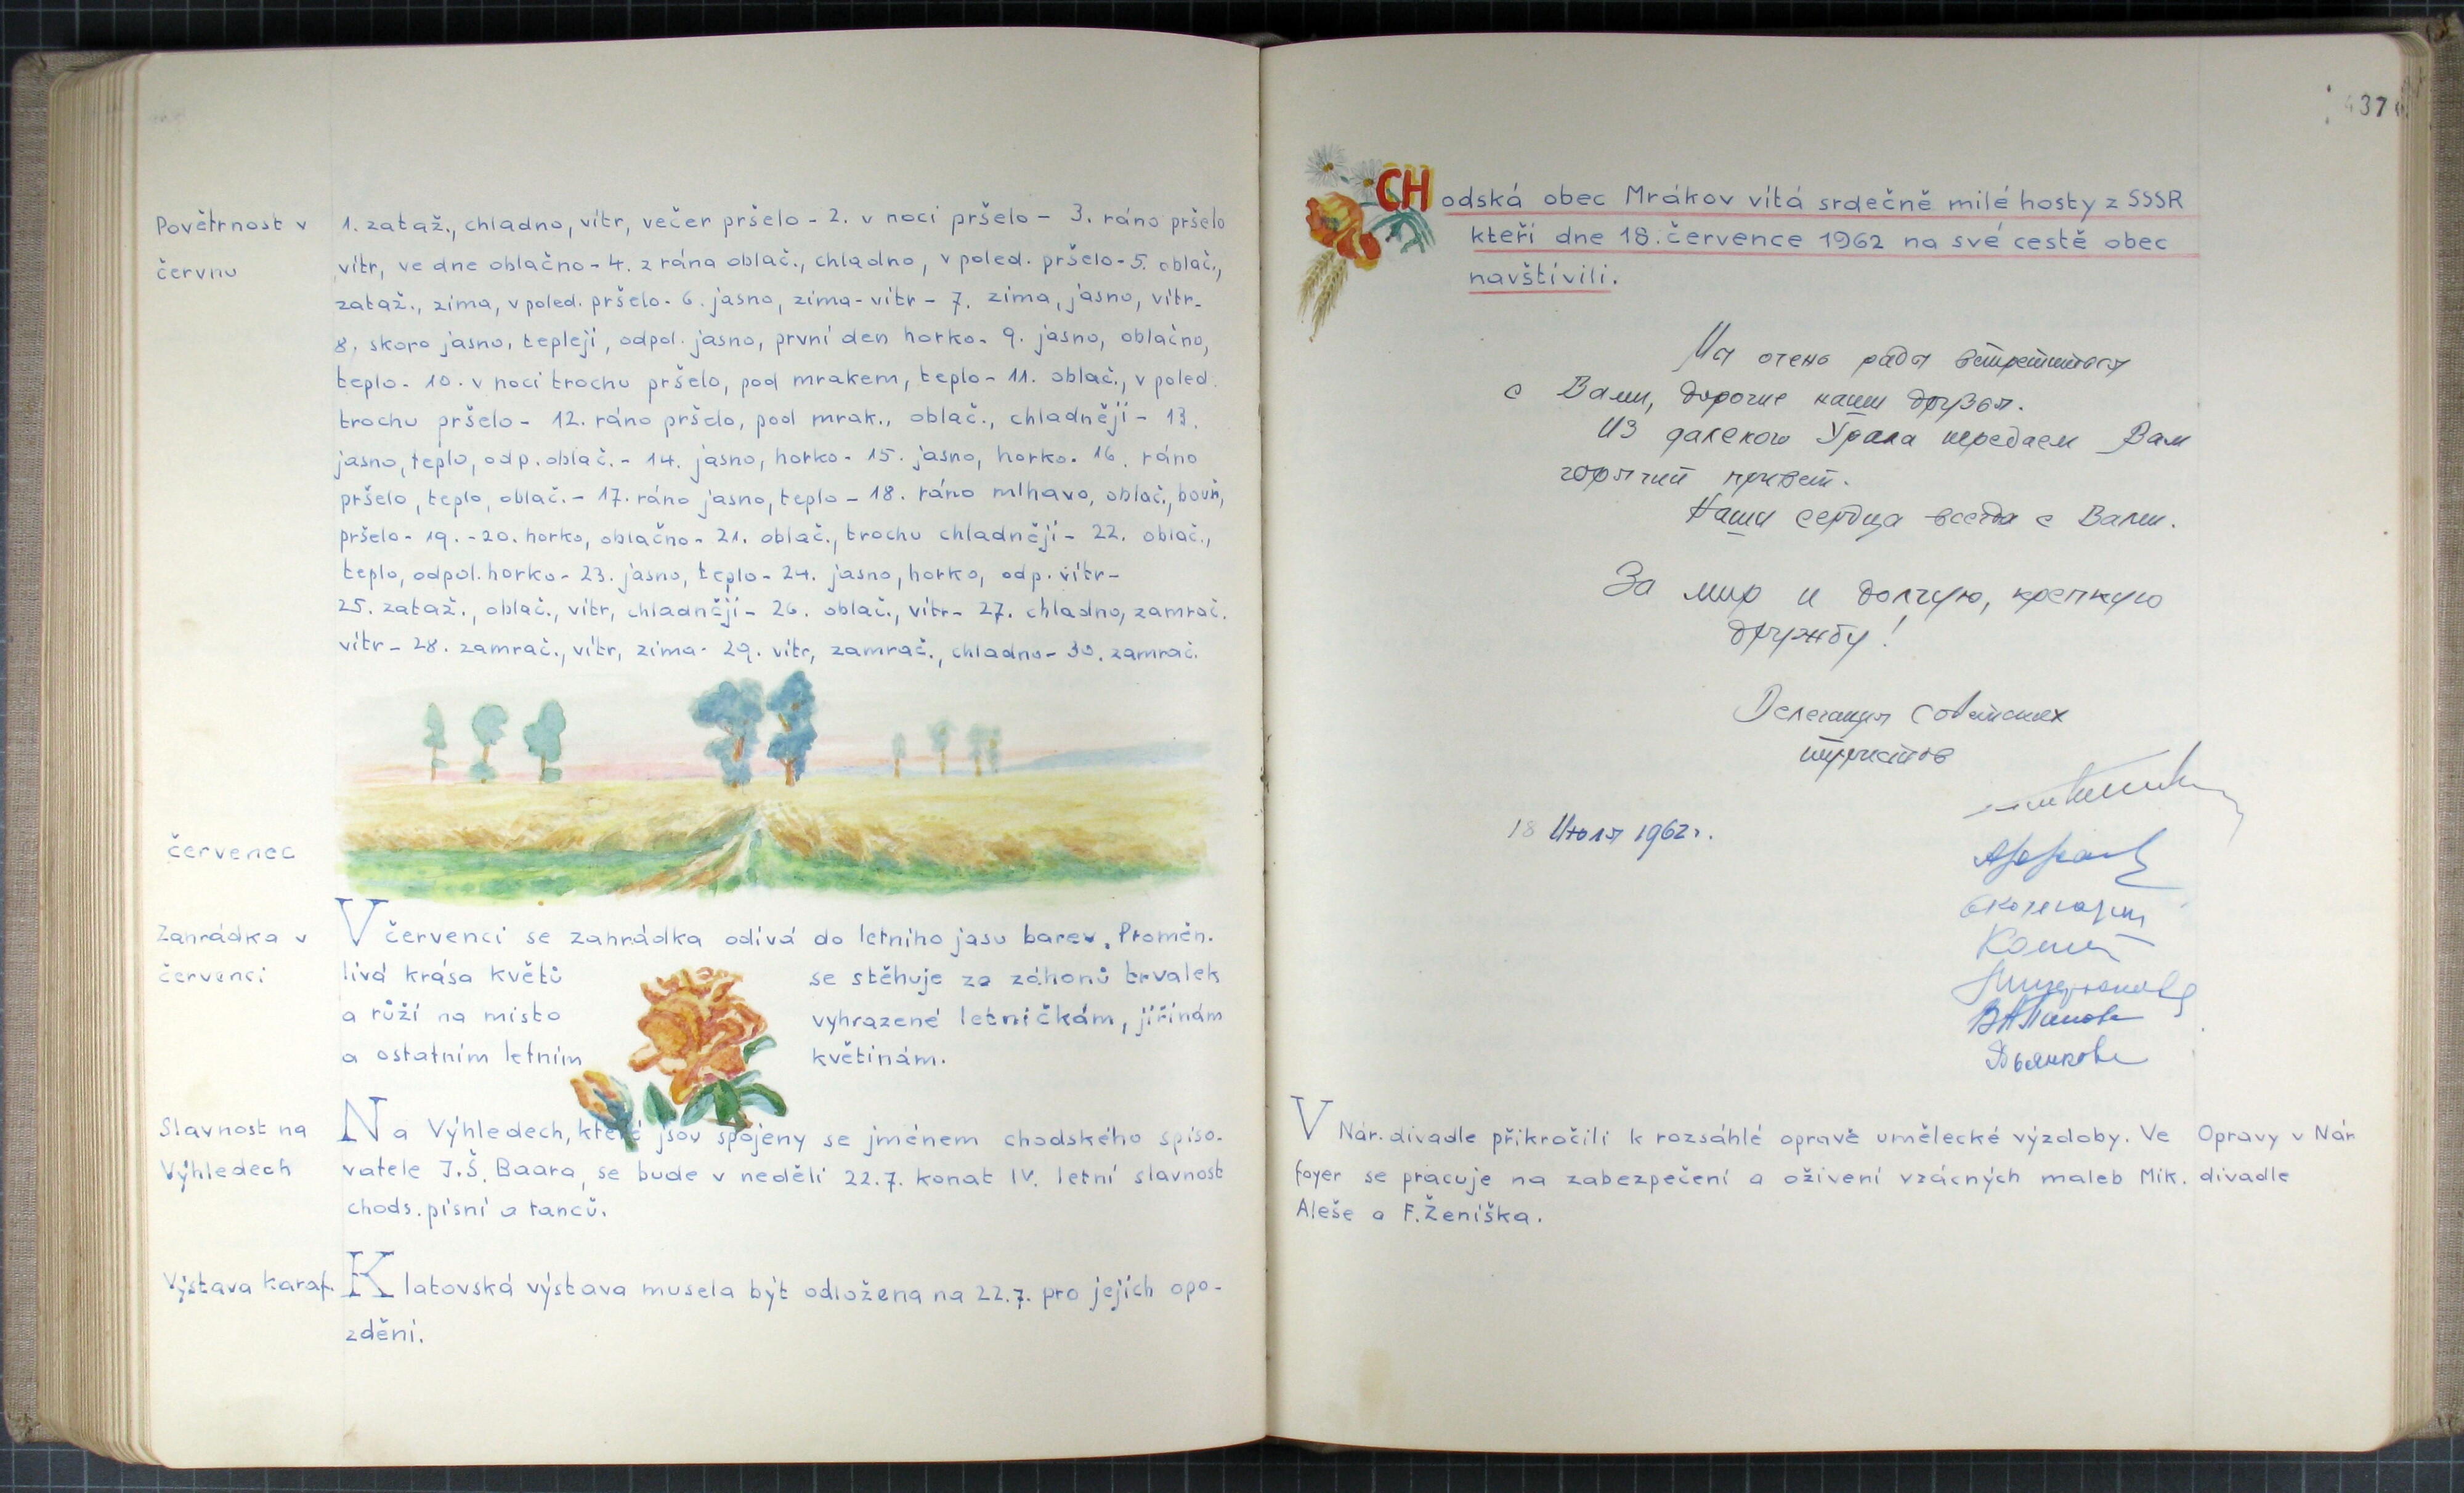 Povětrnost v
červnu
1. zataž., chladno, vítr, večer pršelo - 2. v noci pršelo - 3. ráno pršelo
vítr, ve dne oblačno - 4. z rána oblač., chladno, v poled. pršelo - 5. oblač.,
zataž., zima, v poled. pršelo - 6. jasno, zima - vítr - 7. zima, jasno, vítr -
8. skoro jasno, tepleji, odpol. jasno, první den horko - 9. jasno, oblačno,
teplo - 10. v noci trochu pršelo, pod mrakem, teplo - 11. oblač., v poled.
trochu pršelo - 12. ráno pršelo, pod mrak., oblač., chladněji - 13.
jasno, teplo, odp. oblač. - 14. jasno, horko - 15. jasno, horko - 16. ráno
pršelo, teplo, oblač. - 17. ráno jasno, teplo - 18. ráno mlhavo, oblač., bouř,
pršelo - 19. - 20. horko, oblačno - 21. oblač., trochu chladněji - 22. oblač.,
teplo, odpol. horko - 23. jasno, teplo - 24. jasno, horko, odp. vítr -
25. zataž., oblač., vítr, chladněji - 26. oblač., vítr - 27. chladno, zamrač.
vítr - 28. zamrač., vítr, zima - 29. vítr, zamrač., chladno - 30. zamrač.
červenec
Zahrádka v
červenci
V červenci se zahrádka odívá do letního jasu barev. Proměn.
livá krása květů se stěhuje ze záhonů trvalek
a růží na místo vyhrazené letničkám, jiřinám
a ostatním letním květinám.
Slavnost na
Výhledech
Na Výhledech, které jsou spojeny se jménem chodského spiso.
vatele J.Š. Baara, se bude v neděli 22.7. konat IV. letní slavnost
chods. písní a tanců.
Výstava karaf.
Klatovská výstava musela být odložena na 22.7. pro jejich opo-
zdění.
437
CHodská obec Mrákov vítá srdečně milé hosty z SSSR
kteří dne 18. července 1962 na své cestě obec
navštívili.
Мы очень рады встретиться
с Вами, дорогие наши друзья.
Из далекого Урала передаем Вам
горячий привет.
Наши сердца всегда с Вами.
За мир и долгую, крепкую
дружбу!
Делегация советских
туристов
18 Июля 1962 г.
Дьянкова
V Nár. divadle přikročili k rozsáhlé opravě umělecké výzdoby. Ve
foyer se pracuje na zabezpečení a oživení vzácných maleb Mik.
Aleše a F. Ženíška.
Opravy v Nár
divadle